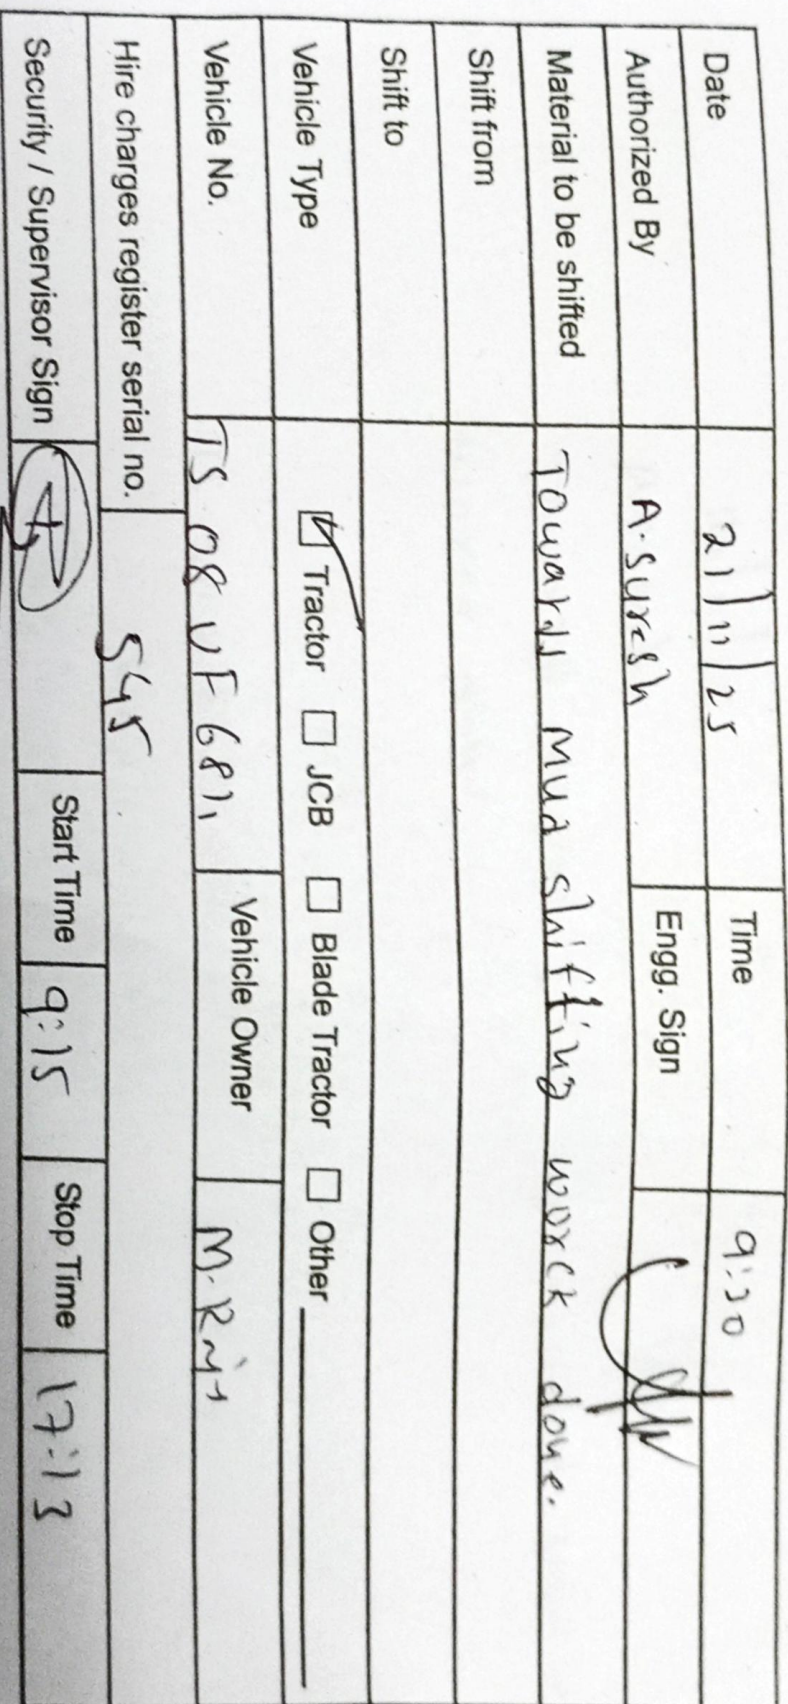 Date 21/11/25 Time
Authorized By A. Suresh Engg. Sign
Material to be shifted Towards mud shifting worck done.
Shift from
Shift to
Vehicle Type ☑ Tractor ☐ JCB ☐ Blade Tractor ☐ Other
Vehicle No. TS 08 UF Vehicle Owner
Hire charges register serial no. 545
Security / Supervisor Sign Start Time 9:15 Stop Time 17:13